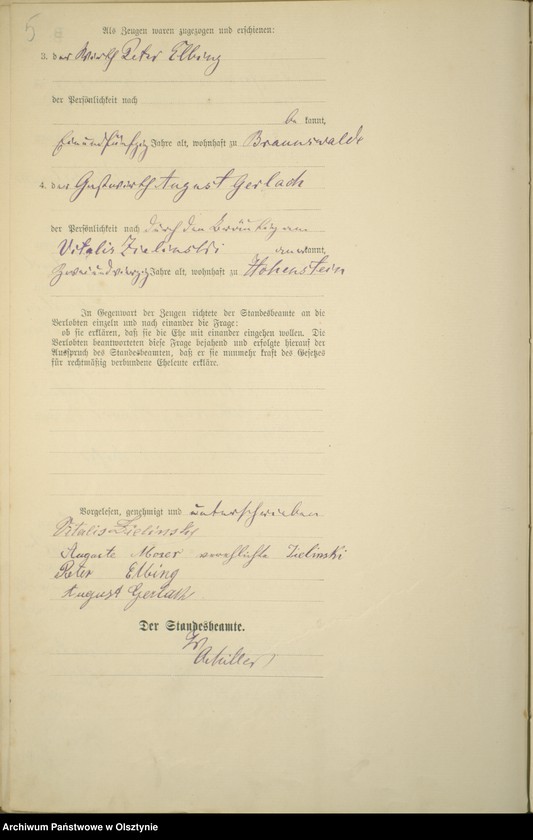 5
Als Zeugen waren zugezogen und erschienen:
3. der Wirth Peter Elbing
der Persönlichkeit nach
be kannt,
einundfünfzig Jahre alt, wohnhaft zu Braunswalde
4. der Gastwirth August Gerlach
der Persönlichkeit nach durch den Bräutigam
Vitalis Zielinski anerkannt,
zweiundvierzig Jahre alt, wohnhaft zu Hohenstein
In Gegenwart der Zeugen richtete der Standesbeamte an die
Verlobten einzeln und nach einander die Frage:
ob sie erklären, daß sie die Ehe mit einander eingehen wollen. Die
Verlobten beantworteten diese Frage bejahend und erfolgte hierauf der
Ausspruch des Standesbeamten, daß er sie nunmehr kraft des Gesetzes
für rechtmäßig verbundene Eheleute erkläre.
Vorgelesen, genehmigt und unterschrieben
Vitalis Zielinski
Auguste verehlichte Zielinski
Peter Elbing
August Gerlach
Der Standesbeamte.
Archiwum Państwowe w Olsztynie